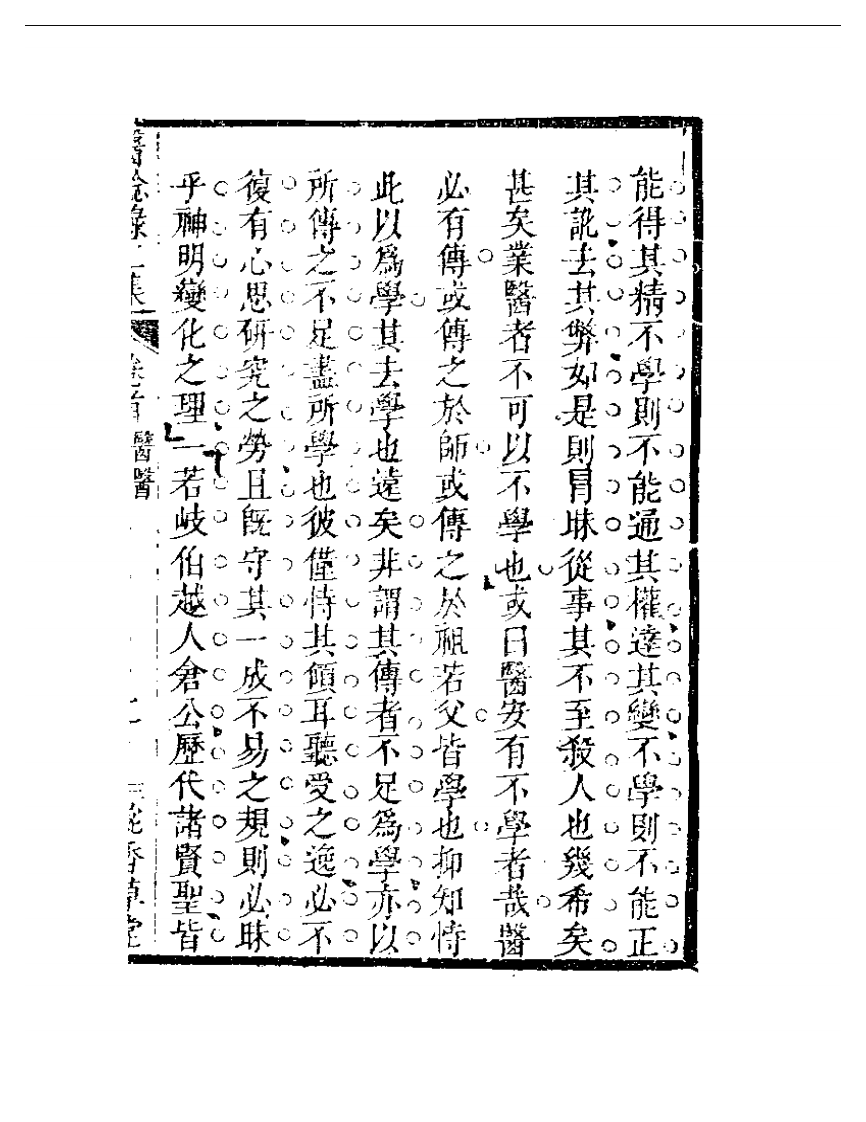 能得其精不學則不能通其權達其變不學則不能正
其訛去其弊如是則冒昧從事其不至殺人也幾希矣
甚矣業醫者不可以不學也或曰醫安有不學者哉醫
必有傳或傳之於師或傳之於祖若父皆學也抑知恃
此以爲學其去學也遠矣非謂其傳者不足爲學亦以
所傳之不足盡所學也彼僅恃其傾耳聽受之逸必不
復有心思研究之勞且旣守其一成不易之規則必昧
乎神明變化之理一若岐伯越人倉公歷代諸賢聖皆
醫驗錄二集 卷首 醫醫 二 香草堂